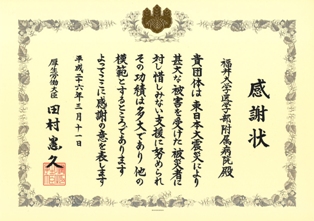 感謝状
福井大学医学部附属病院殿
貴団体は東日本大震災により
甚大な被害を受けた被災者に
対し惜しみない支援に努められ
その功績は多大であり他の
模範とするところであります
よってここに感謝の意を表します
平成二十六年三月十一日
厚生労働大臣 田村憲久